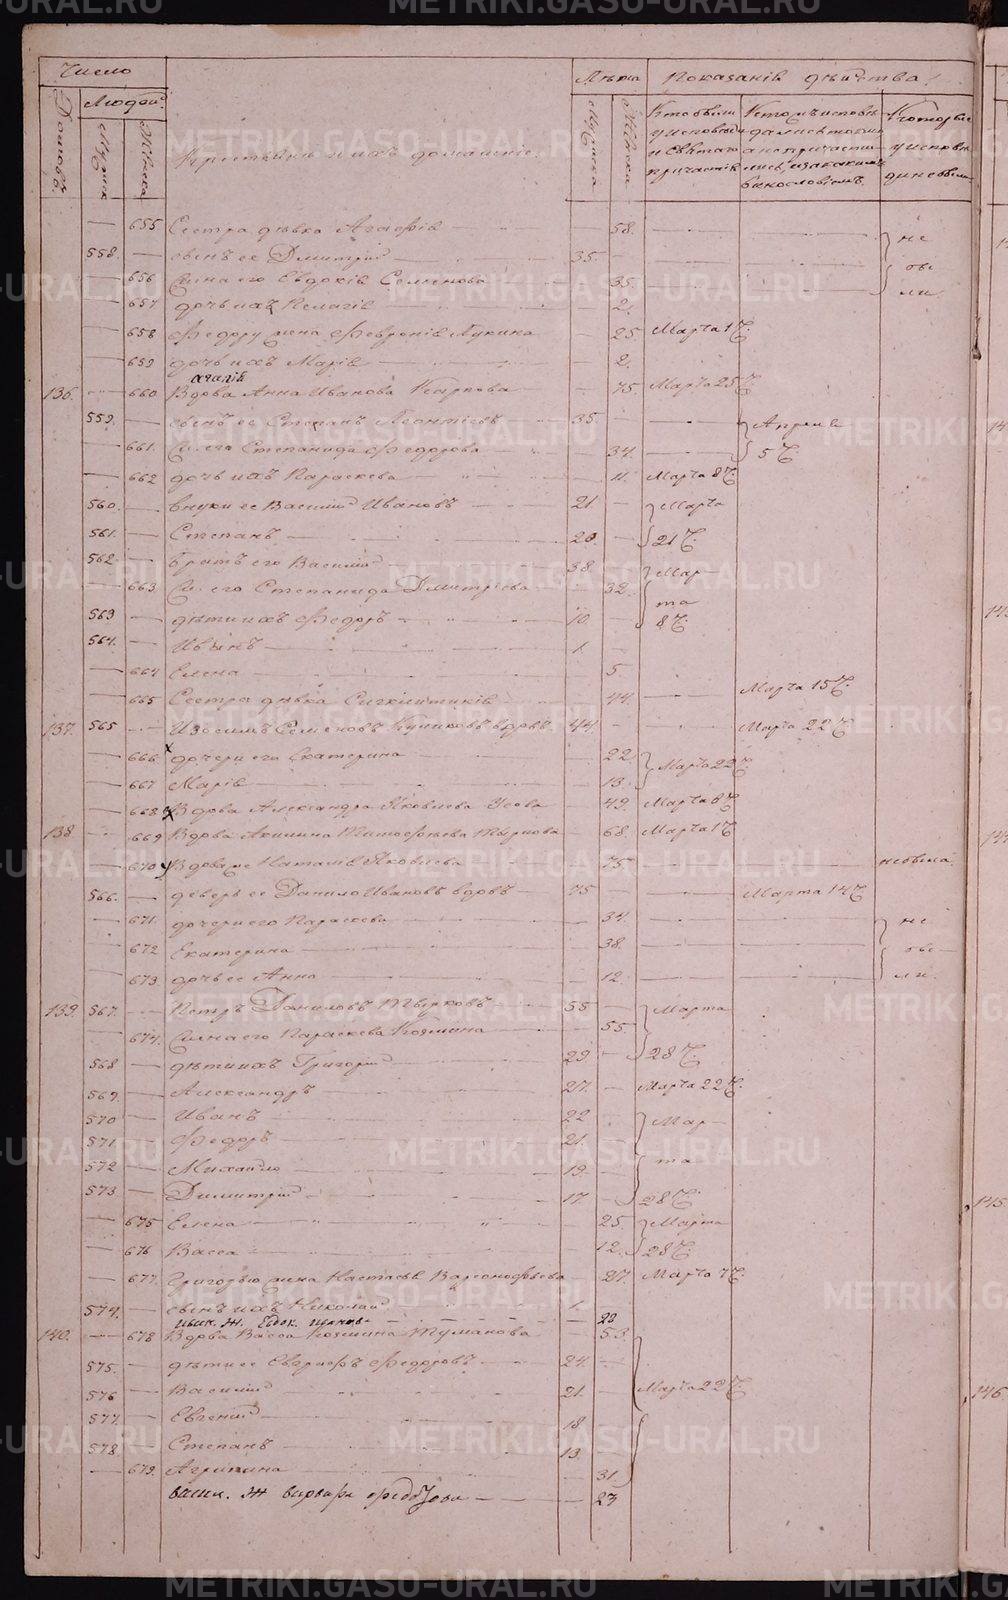 Число
Лѣта
Показанiѣ дѣйства
Людей
Домовъ.
Мужеска
Женска
Крестьяне и ихъ домашнiе.
Мужеска
Женска
Кто были у исповѣди и Святаго причастiя
Кто исповѣдались токмо а не причастились, и за какимъ виносло­вiемъ.
Кто
у исповѣди не были
655 Сестра дѣвка Агафiѣ 58. не
558. сынъ ее Димитрiй 35. бы
656 Жена его Евдокiѣ Семенова 35. ли
657 дочь ихъ Пелагiѣ 2.
658 Федору жена Февронiѣ Лукина 25 Марта 1 Ч.
659 дочь ихъ Марiѣ 2.
136. 660 Вдова Анна Иванова Карпова 75. Марта 25 Ч.
559. сынъ ее Степанъ Леонтьевъ 35. Апреля
661. Ж. его Степанида Федорова 34. 5 Ч.
662 дочь ихъ Параскева 11. Марта 8 Ч.
560. внуки ее Василiй Ивановъ 21. Марта
561. Степанъ 20. 21 Ч.
562. братъ его Василiй 38. Мар
663 Ж. его Степанида Дмитрiева 32. та
563 дѣти ихъ Федоръ 10 8 Ч.
564. Иванъ 1.
664 Елена 5.
665 Сестра дѣвка Сигклитикiѣ 44. Марта 15 Ч.
137. 565 Изосимъ Семеновъ Куликовъ вдовъ 44. Марта 22 Ч.
666 дочери его Екатерина 22. Марта 22 Ч.
667 Марiѣ 13.
668 Вдова Александра Яковлева Усова 49. Марта 8 Ч.
138 669 Вдова Акилина Тимофѣева Тыркова 68. Марта 1 Ч
670 Вдова же Наталiѣ Яковлева 75 не была
566. деверь ее Данило Ивановъ вдовъ 75 Марта 14 Ч
671. дочери его Параскева 34. не
672 Екатерина 38. бы
673. дочь ее Анна 12. ли
139. 567. Петръ Даниловъ Тырковъ 55 Марта
674. Жена его Параскева Козмина 55. 28 Ч.
568 дѣти ихъ Григорiй 29.
569. Александръ 27. Марта 22 Ч.
570 Иванъ 22 Мар
571 Федоръ 21.
572 Михайло 19. та
573 Димитрiй 17. 28 Ч.
675 Елена 25. Марта
676 Васса 12. 28 Ч.
677. Григорью жена Настасья Варсонофьева 27. Марта 7 Ч.
574. сынъ ихъ Николай 1.
Иван. Ж. Евдок. 22
140. 678 Вдова Васса Козмина Туманова 53.
575. дѣти ее Евграфъ Федоровъ 24.
576 Василiй 21. Марта 22 Ч
577. Евгенiй 18.
578. Степанъ 13.
679. Агрипина 31.
васил. Ж Варвара Федорова 23